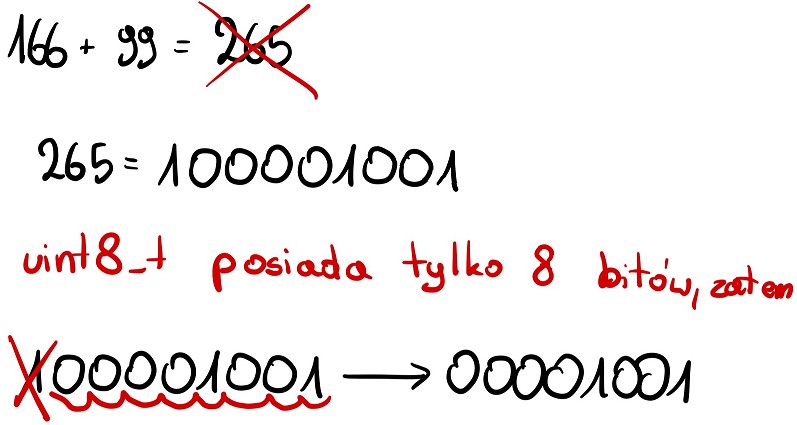 166 + 99 = 265
265 = 100001001
uint8_t posiada tylko 8 bitów, zatem
100001001 → 00001001